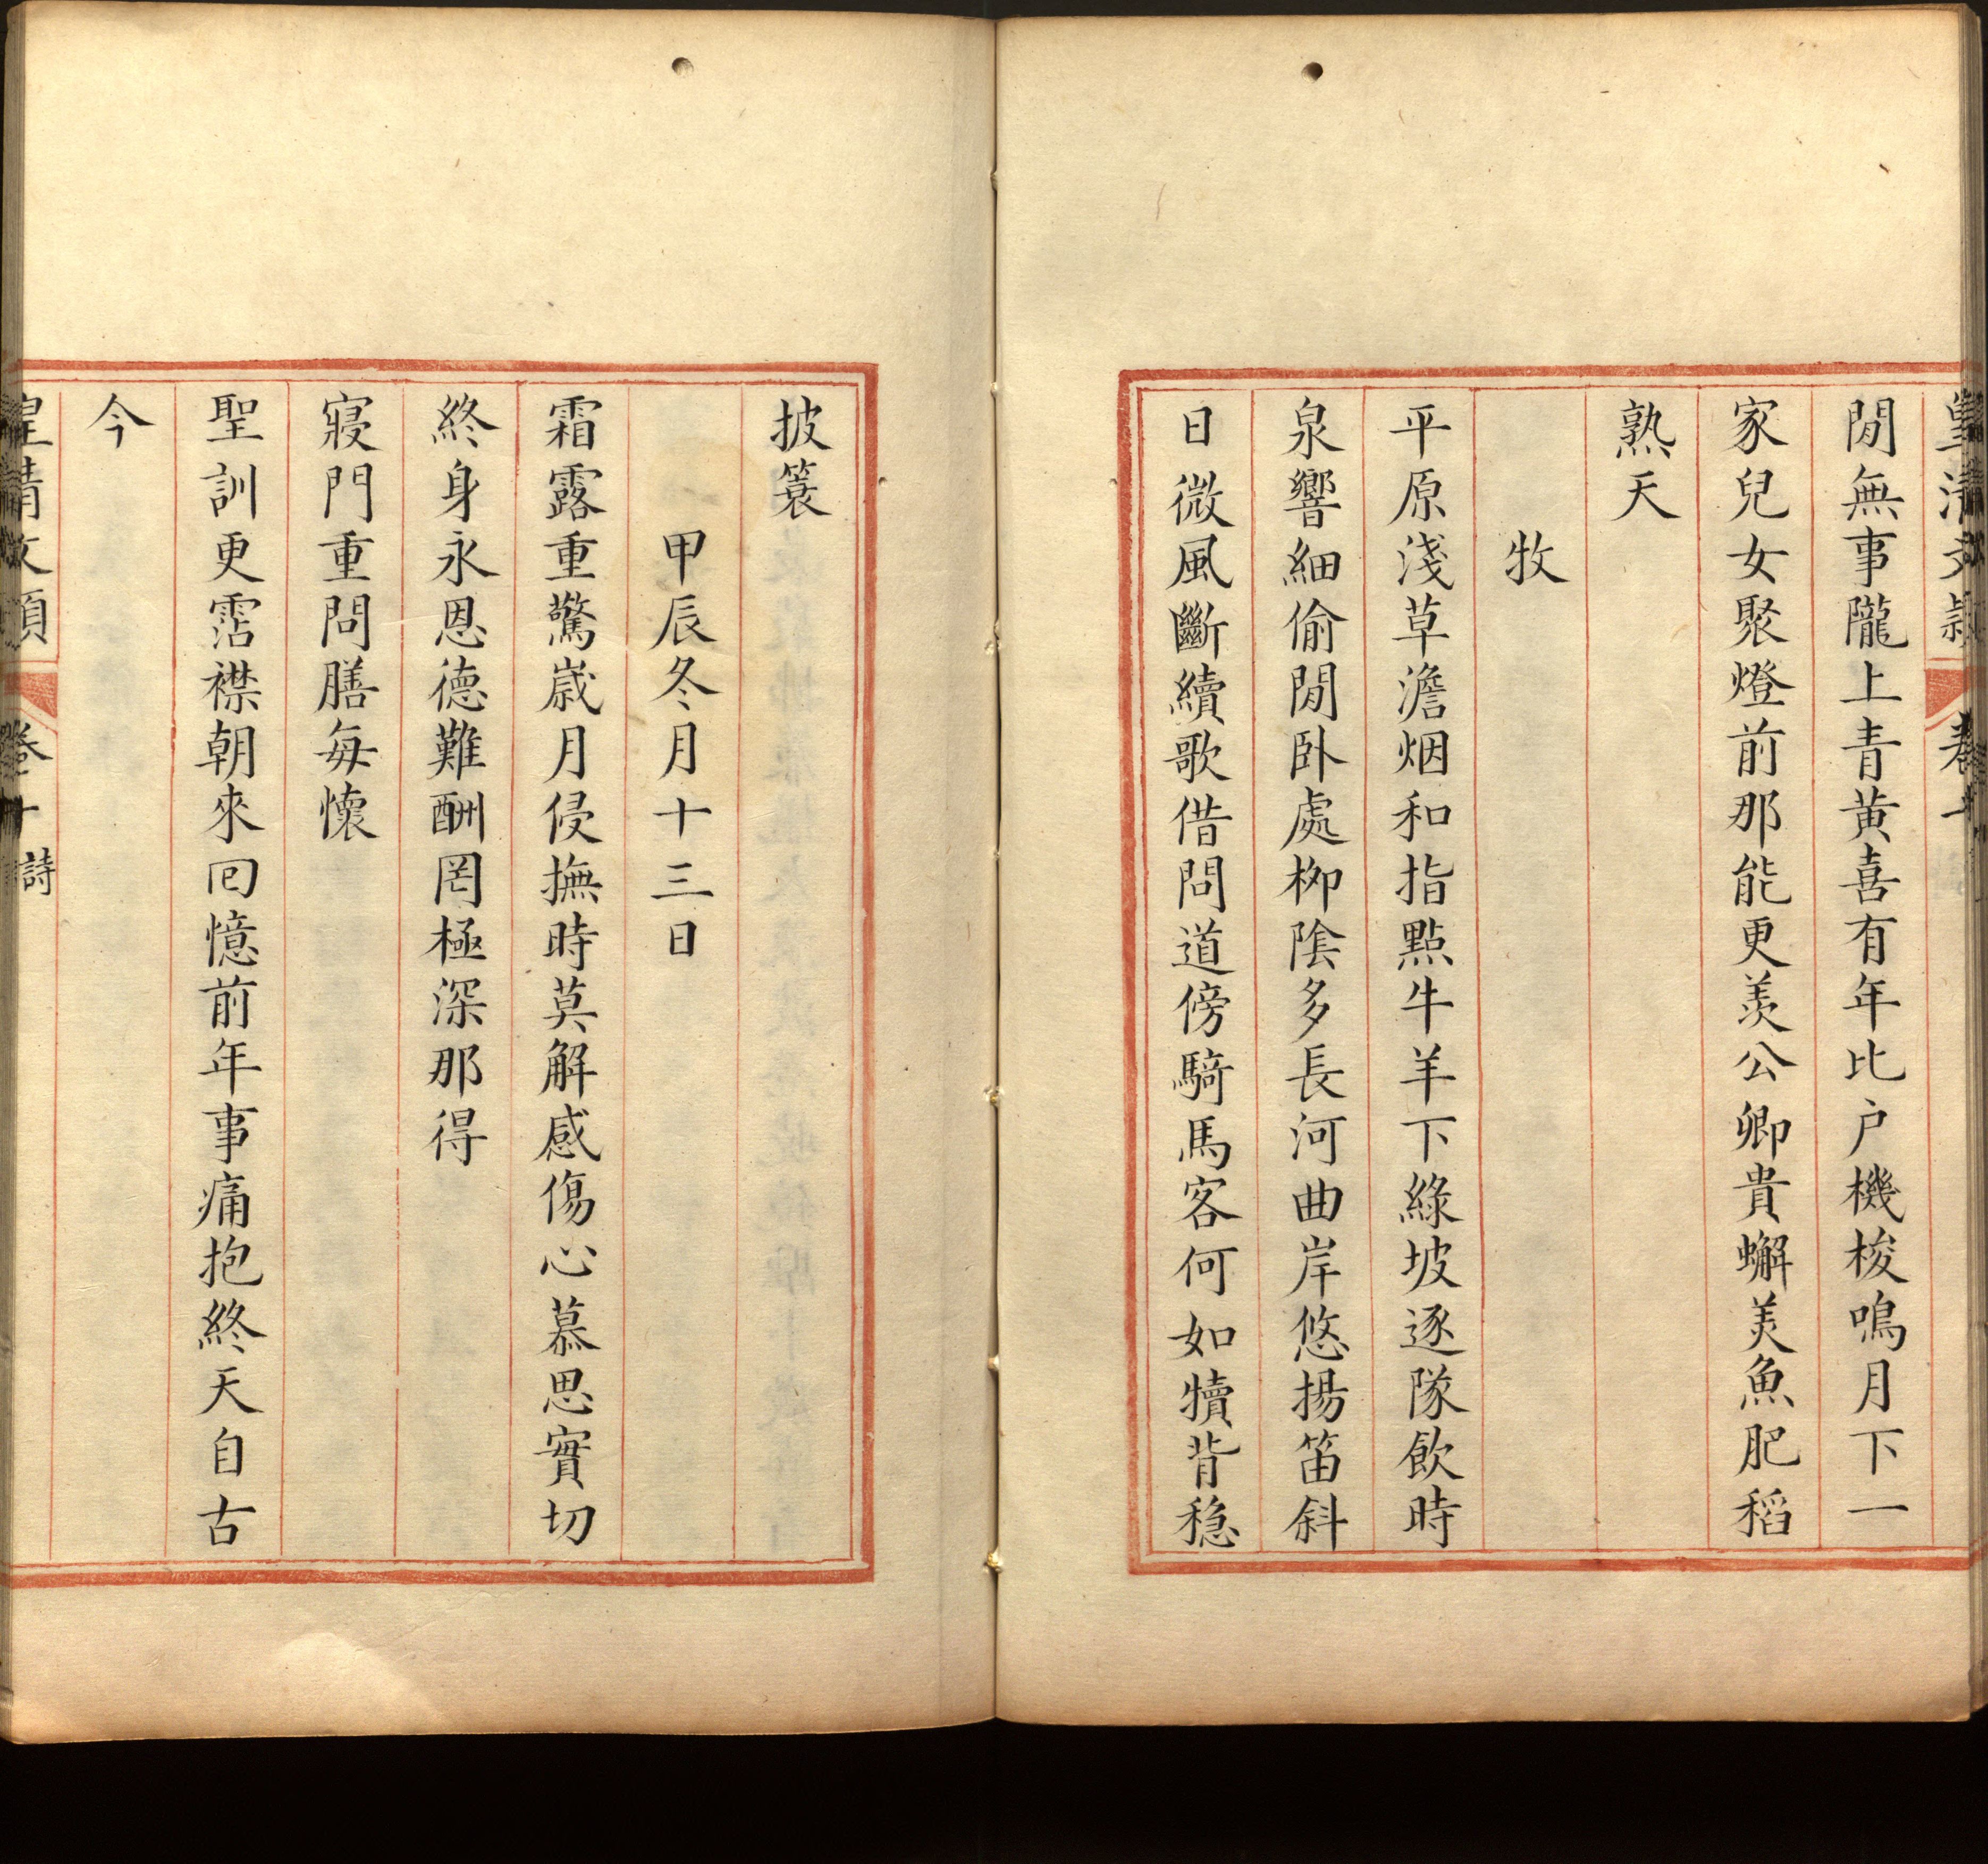 皇清文穎 卷十
閒無事隴上青黃喜有年比户機梭鳴月下一
家兒女聚燈前那能更羡公卿貴蠏美魚肥稻
熟天
牧
平原淺草澹烟和指點牛羊下綠坡逐隊飲時
泉響細偷閒卧處柳陰多長河曲岸悠揚笛斜
日微風斷續歌借問道傍騎馬客何如犢背穩
披簑
甲辰冬月十三日
霜露重驚歲月侵撫時莫解感傷心慕思實切
終身永恩德難酬罔極深那得
寢門重問膳每懷
聖訓更霑襟朝來回憶前年事痛抱終天自古
今
皇清文穎 卷十 詩